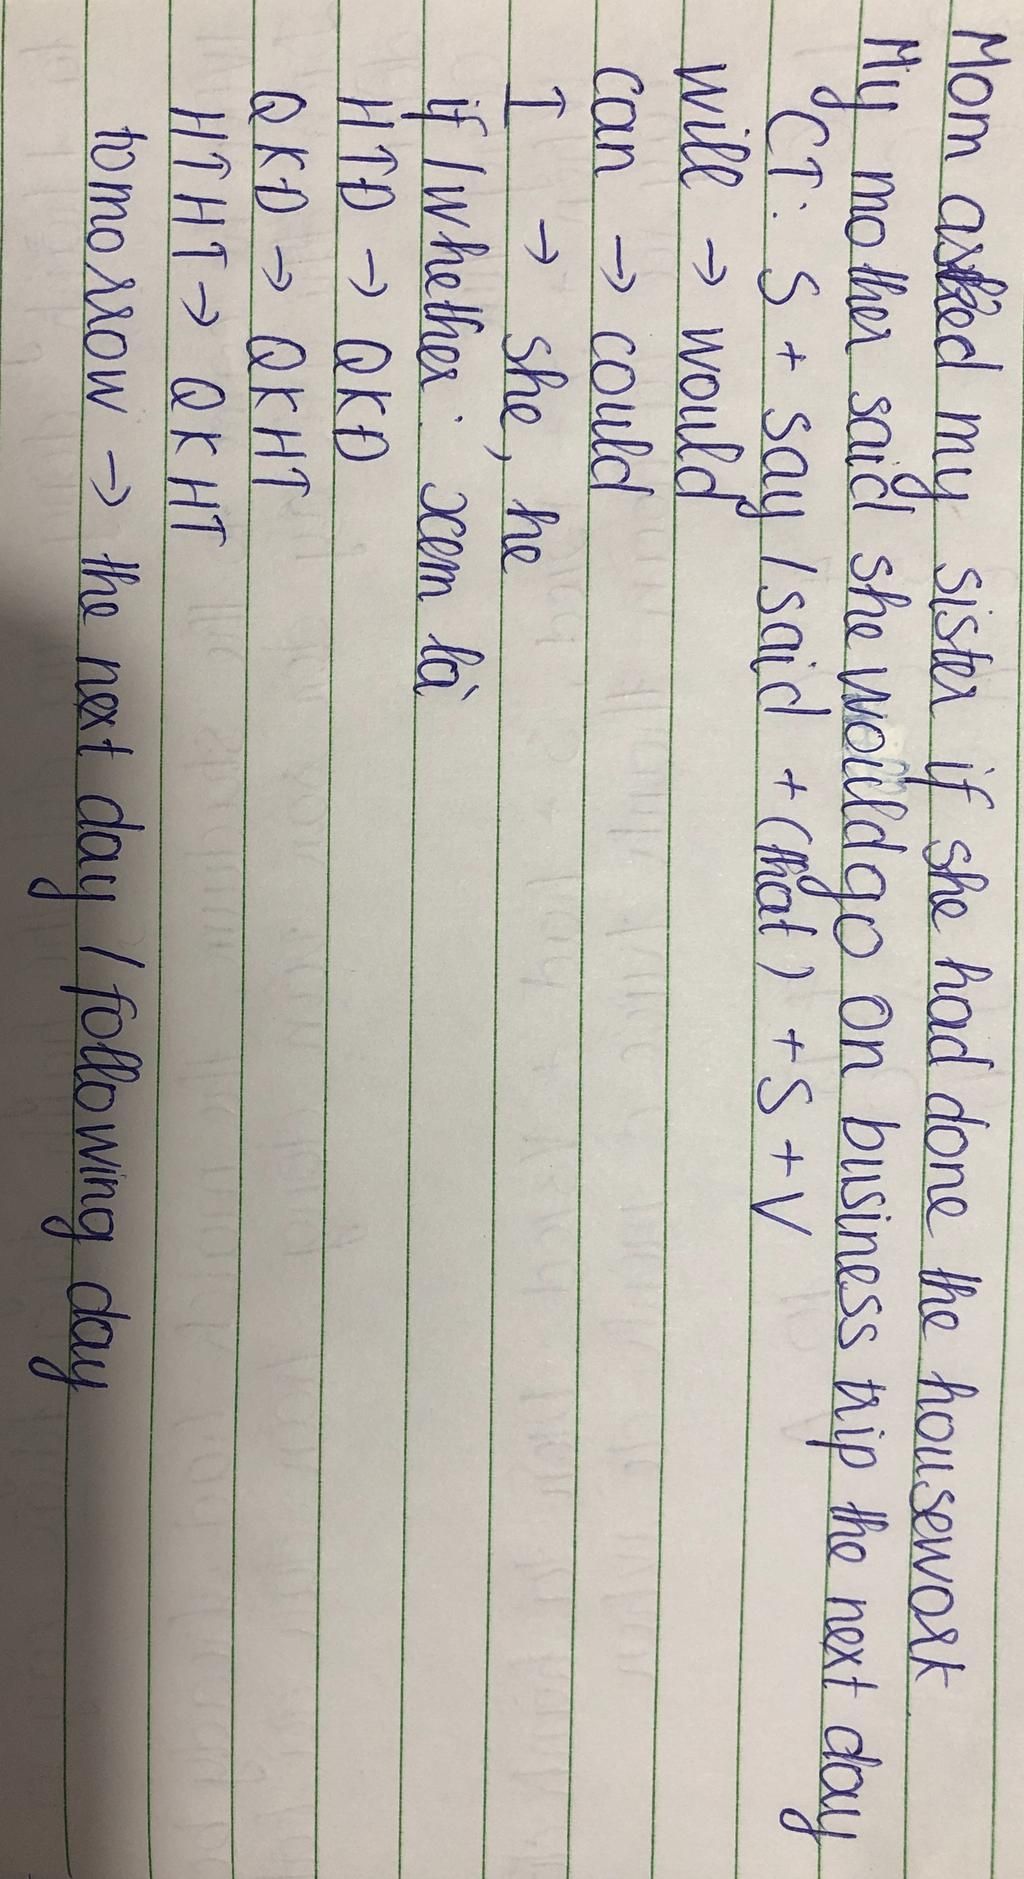 Mom asked my sister if she had done the housework
My mother said she would go on business trip the next day
CT: S + say / said + (that) + S + V
will → would
can → could
I → she, he
if / whether: xem là
HTĐ → QKĐ
QKĐ → QKHT
HTHT → QKHT
tomorrow → the next day / following day